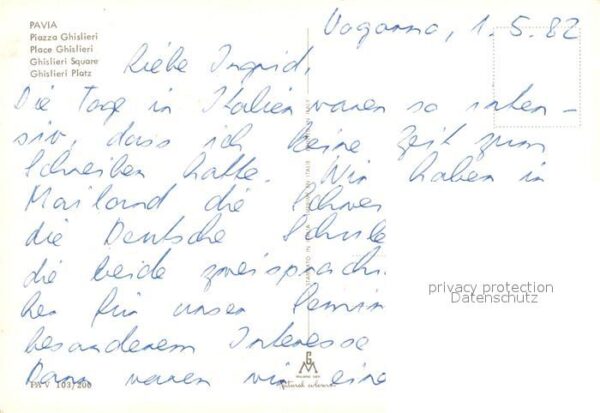 PAVIA
Piazza Ghislieri
Place Ghislieri
Ghislieri Square
Ghislieri Platz
1.5.82
Liebe Ingrid,
Die Tage in Italien waren so inten-
siv, dass ich keine Zeit zum
Schreiben hatte. Wir haben in
Mailand die Schwei
die Deutsche Schule
die beide zweisprachi
für unser Semin
besonderem Interesse
Dann waren wir eine
privacy protection
Datenschutz
PAV 103/200